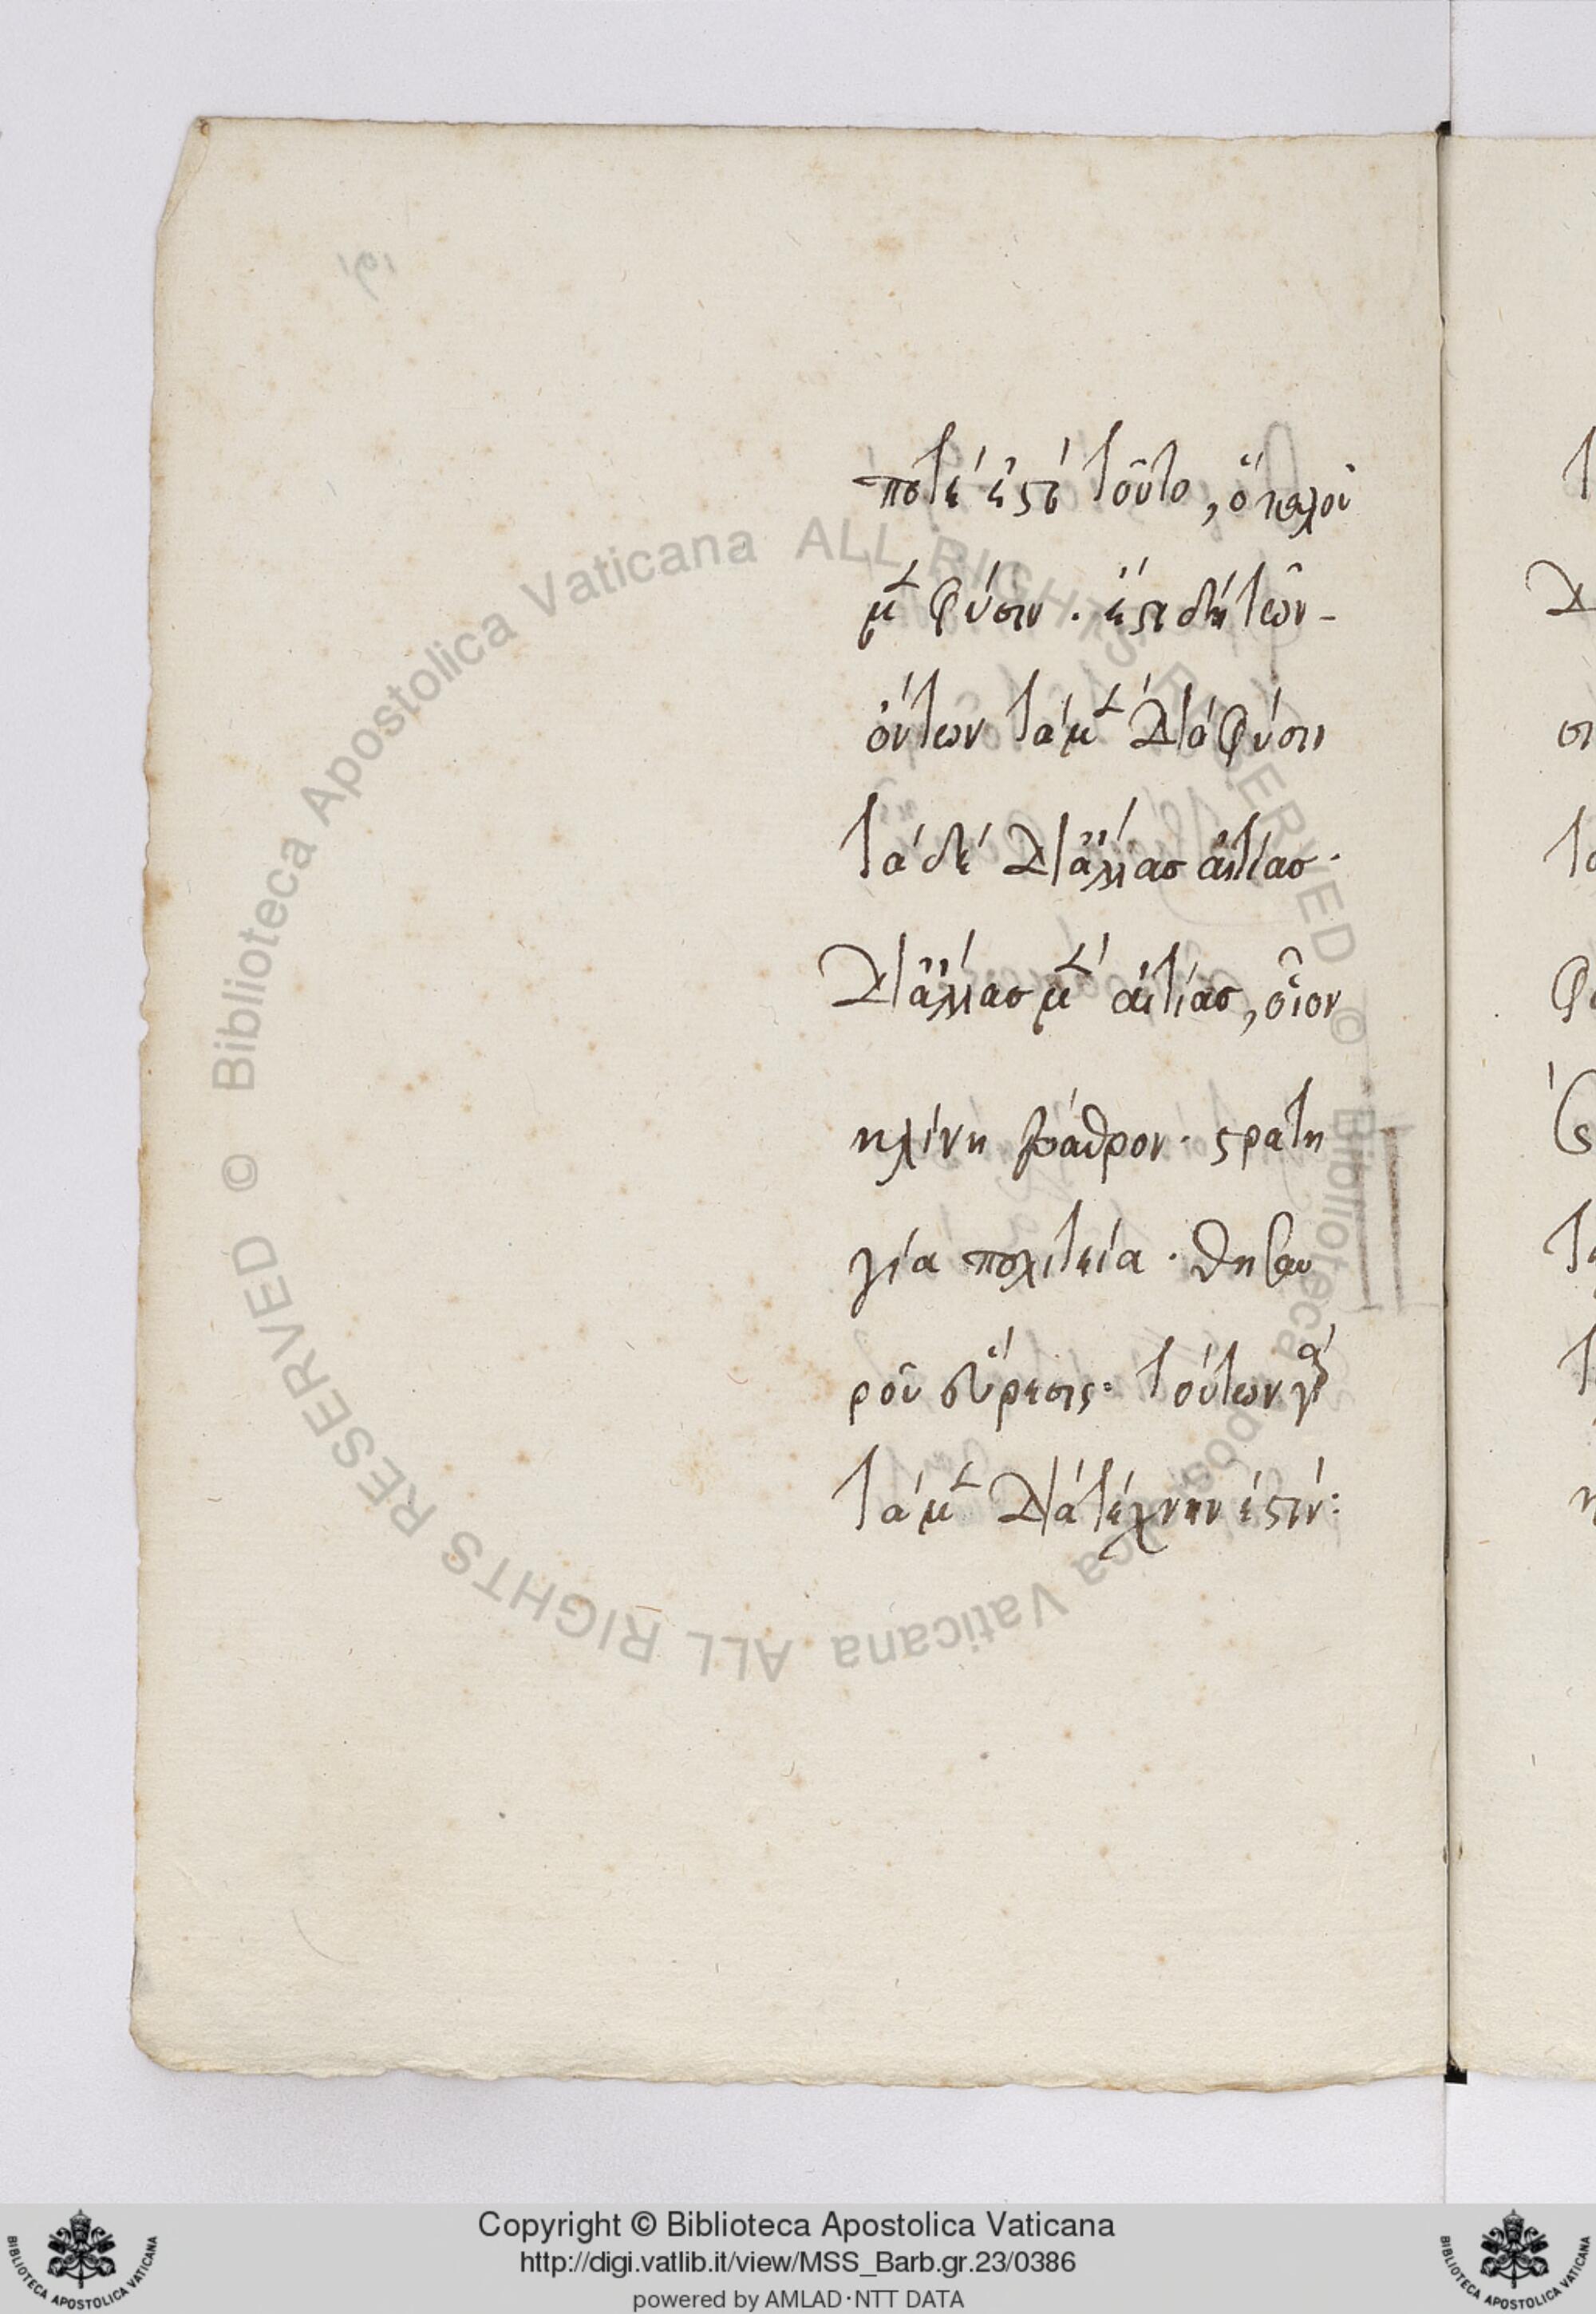 ποτέ ἐστὶ τοῦτο, ὃ καλοῦ
μ(εν) φύσιν. ἔστι δὴ τῶν
ὄντων τὰ μ(ὲν) διὰ φύσιν
τὰ δὲ δι ἄλλας αἰτίας.
δι ἄλλας μ(ὲν) αἰτίας, οἷον
κλίνη βάθρον. στρατη
γία πολιτεία. θησαυ
ροῦ εὕρεσις. τούτων γ(ὰρ)
τὰ μ(ὲν) διὰ τέχνην ἐστίν:
© Biblioteca Apostolica Vaticana ALL RIGHTS RESERVED © Biblioteca Apostolica Vaticana ALL RIGHTS RESERVED
Copyright © Biblioteca Apostolica Vaticana
http://digi.vatlib.it/view/MSS_Barb.gr.23/0386
powered by AMLAD·NTT DATA
BIBLIOTECA APOSTOLICA VATICANA
BIBLIOTECA APOSTOLICA VATICANA